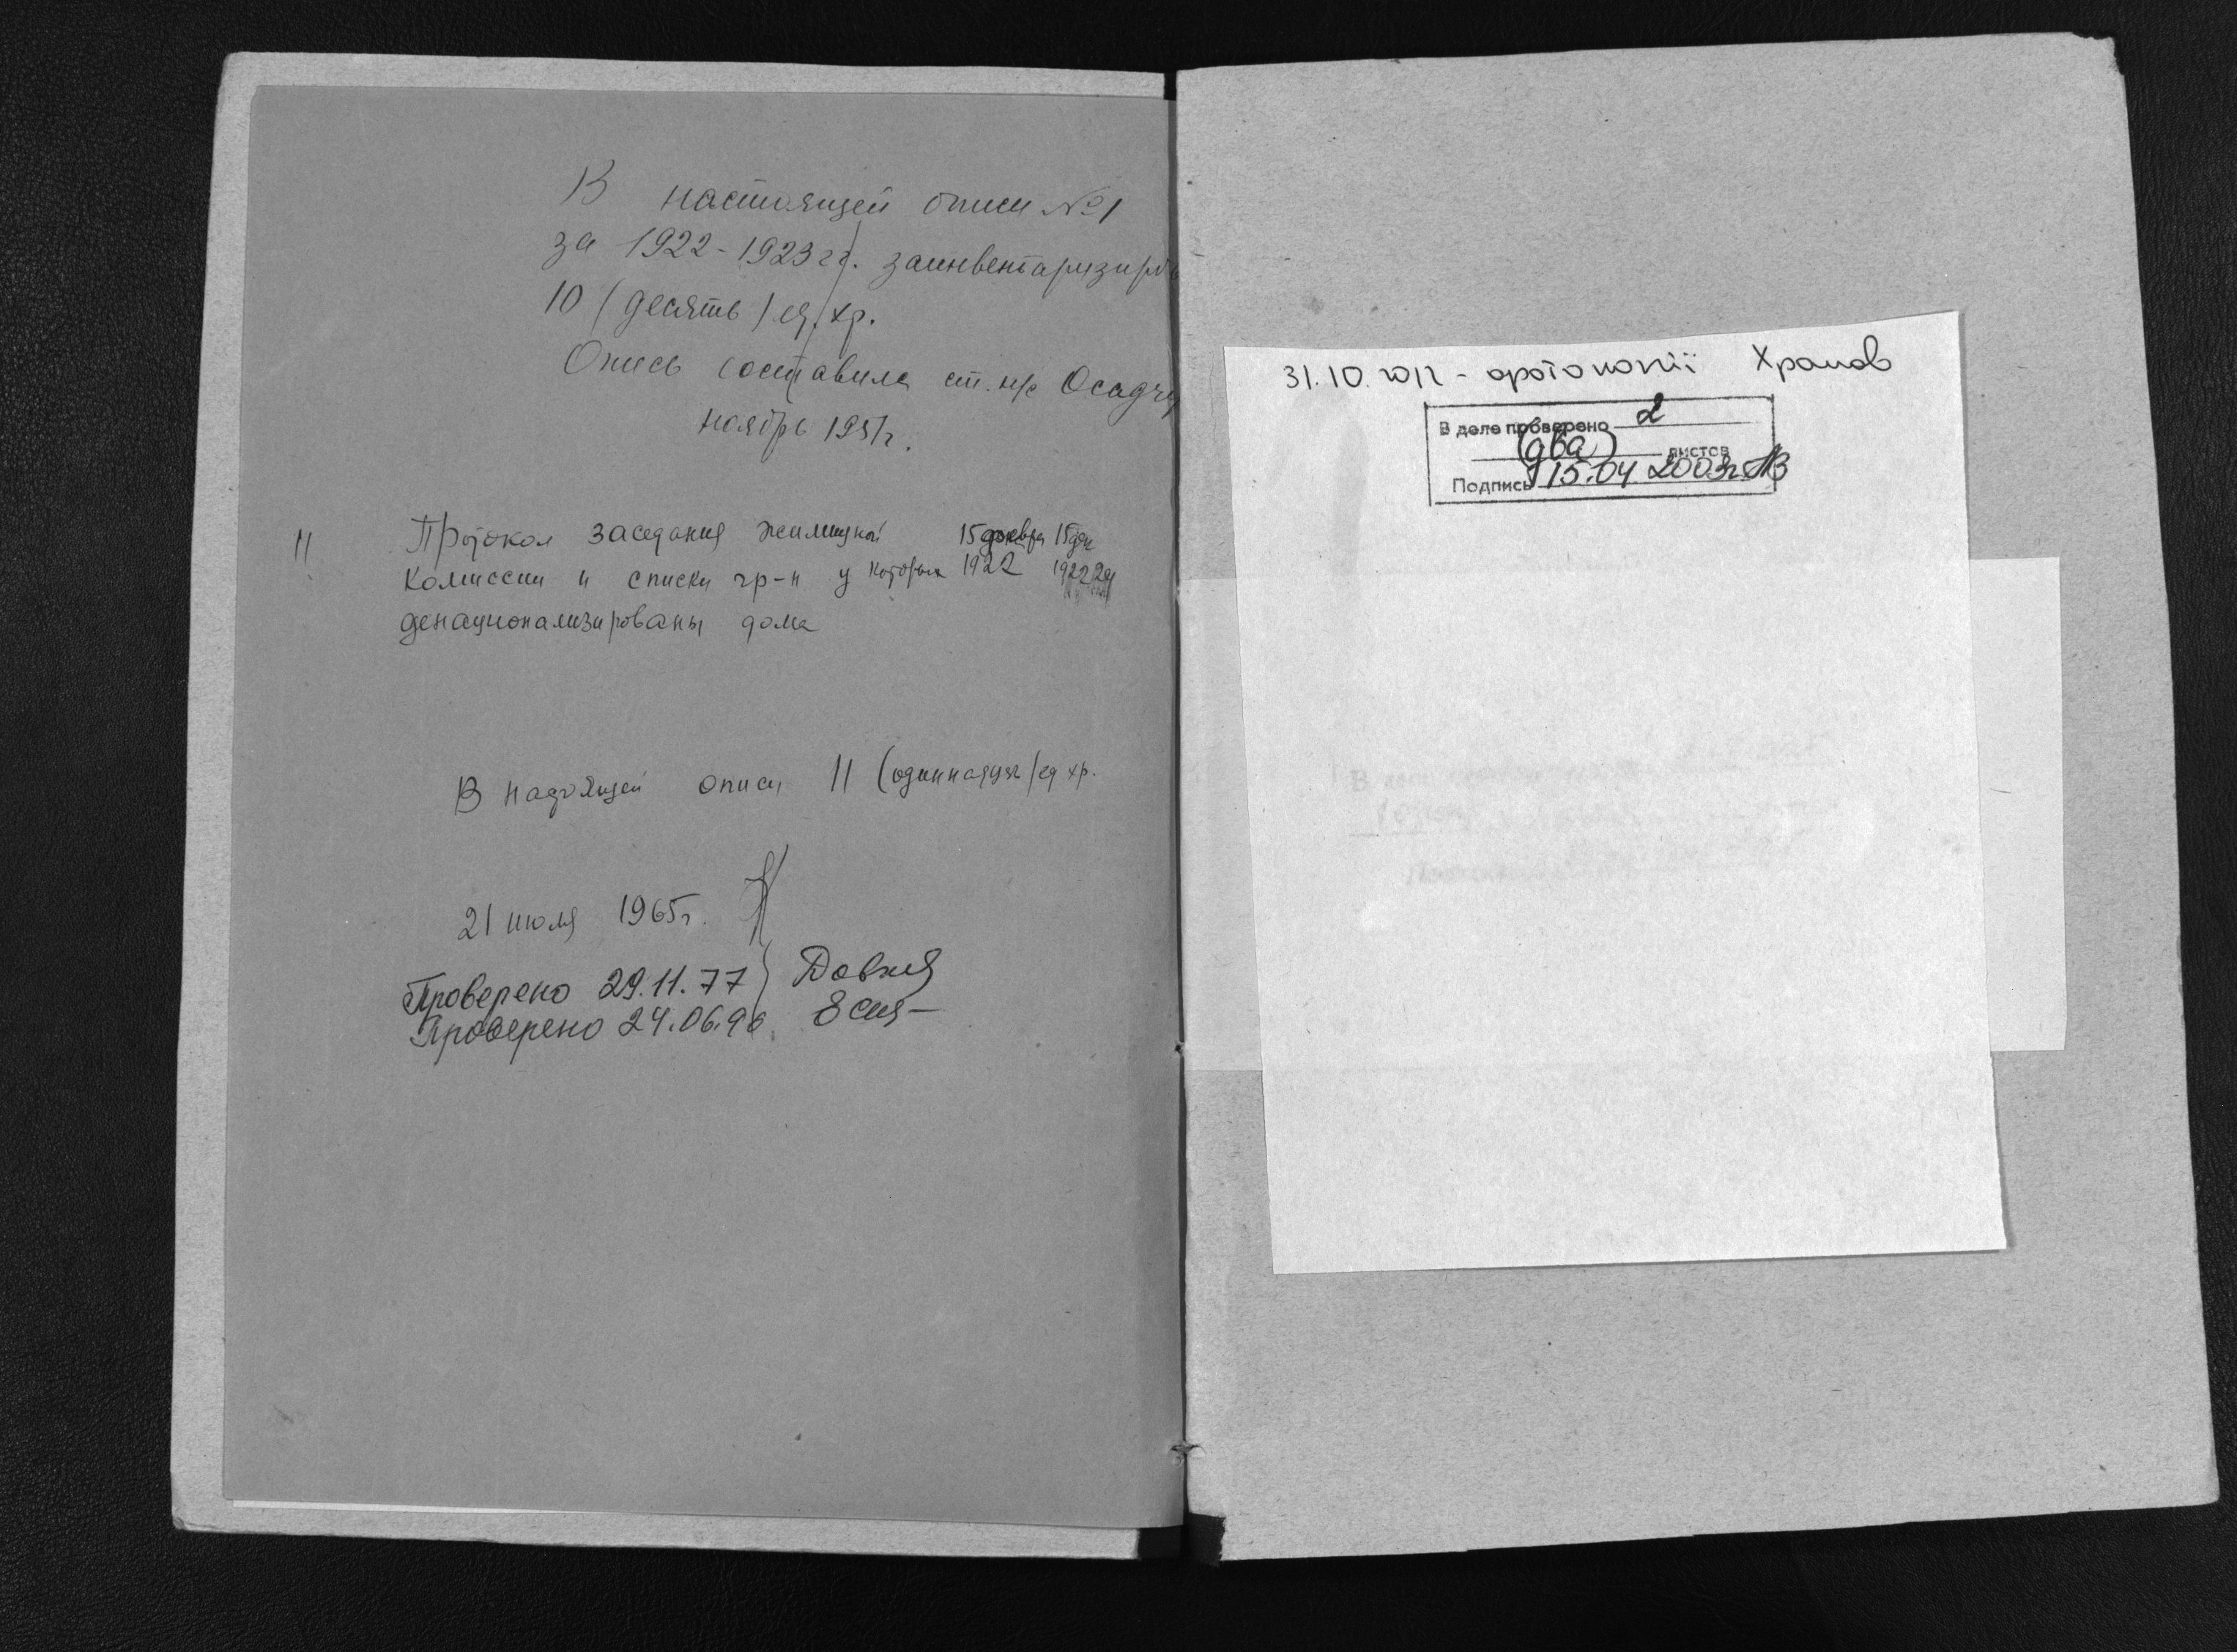 В настоящей описи №1
за 1922-1923 гг. заинвентаризиро
10 (десять) ед. хр.
Опись составила ст. н/с Осадч
ноябрь 1951г.
11 Протокол заседания жилищной 15 декабря 15 дек
комиссии и списки гр-н у которых 1922 1922
денационализированы дома
В настоящей описи 11 (одиннадцать) ед хр.
21 июля 1965г.
Проверено 29.11.77
Проверено 24.06.90
31.10.2012 - фотокопії Храмов
В деле проверено 2
(два) листов
Подпись 15.04 2003г